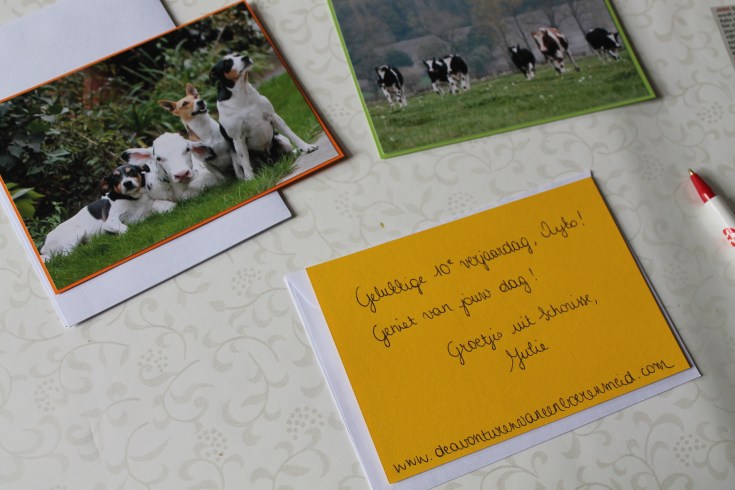 Gelukkige 10e verjaardag, Ayko!
Geniet van jouw dag!
Groetjes uit Schorisse,
Julie
www.deavonturenvaneenboerenmeid.com